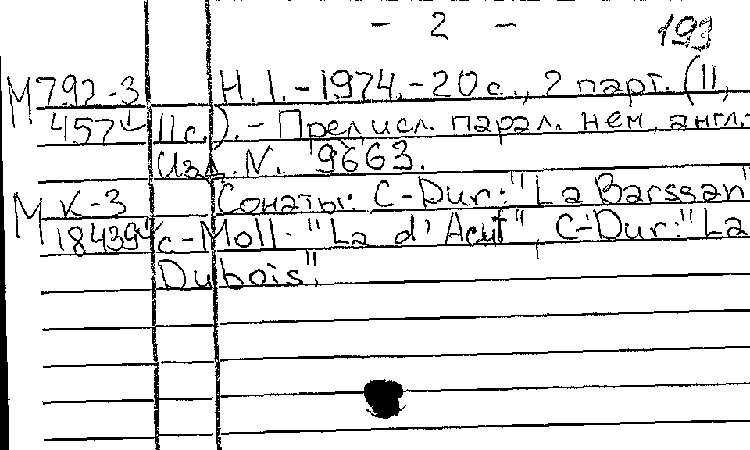 - 2 -
193
М 792-3 Н. 1. - 1974. - 20 с., 2 парт. (11,
4571 11 с.). - Пред. исл. парал. нем., англ.
Изд. N. 9663.
М К-3 Сонаты: C-Dur: "La Barssan"
18439 c-Moll: "La d'Acut", C-Dur: "La
Dubois".